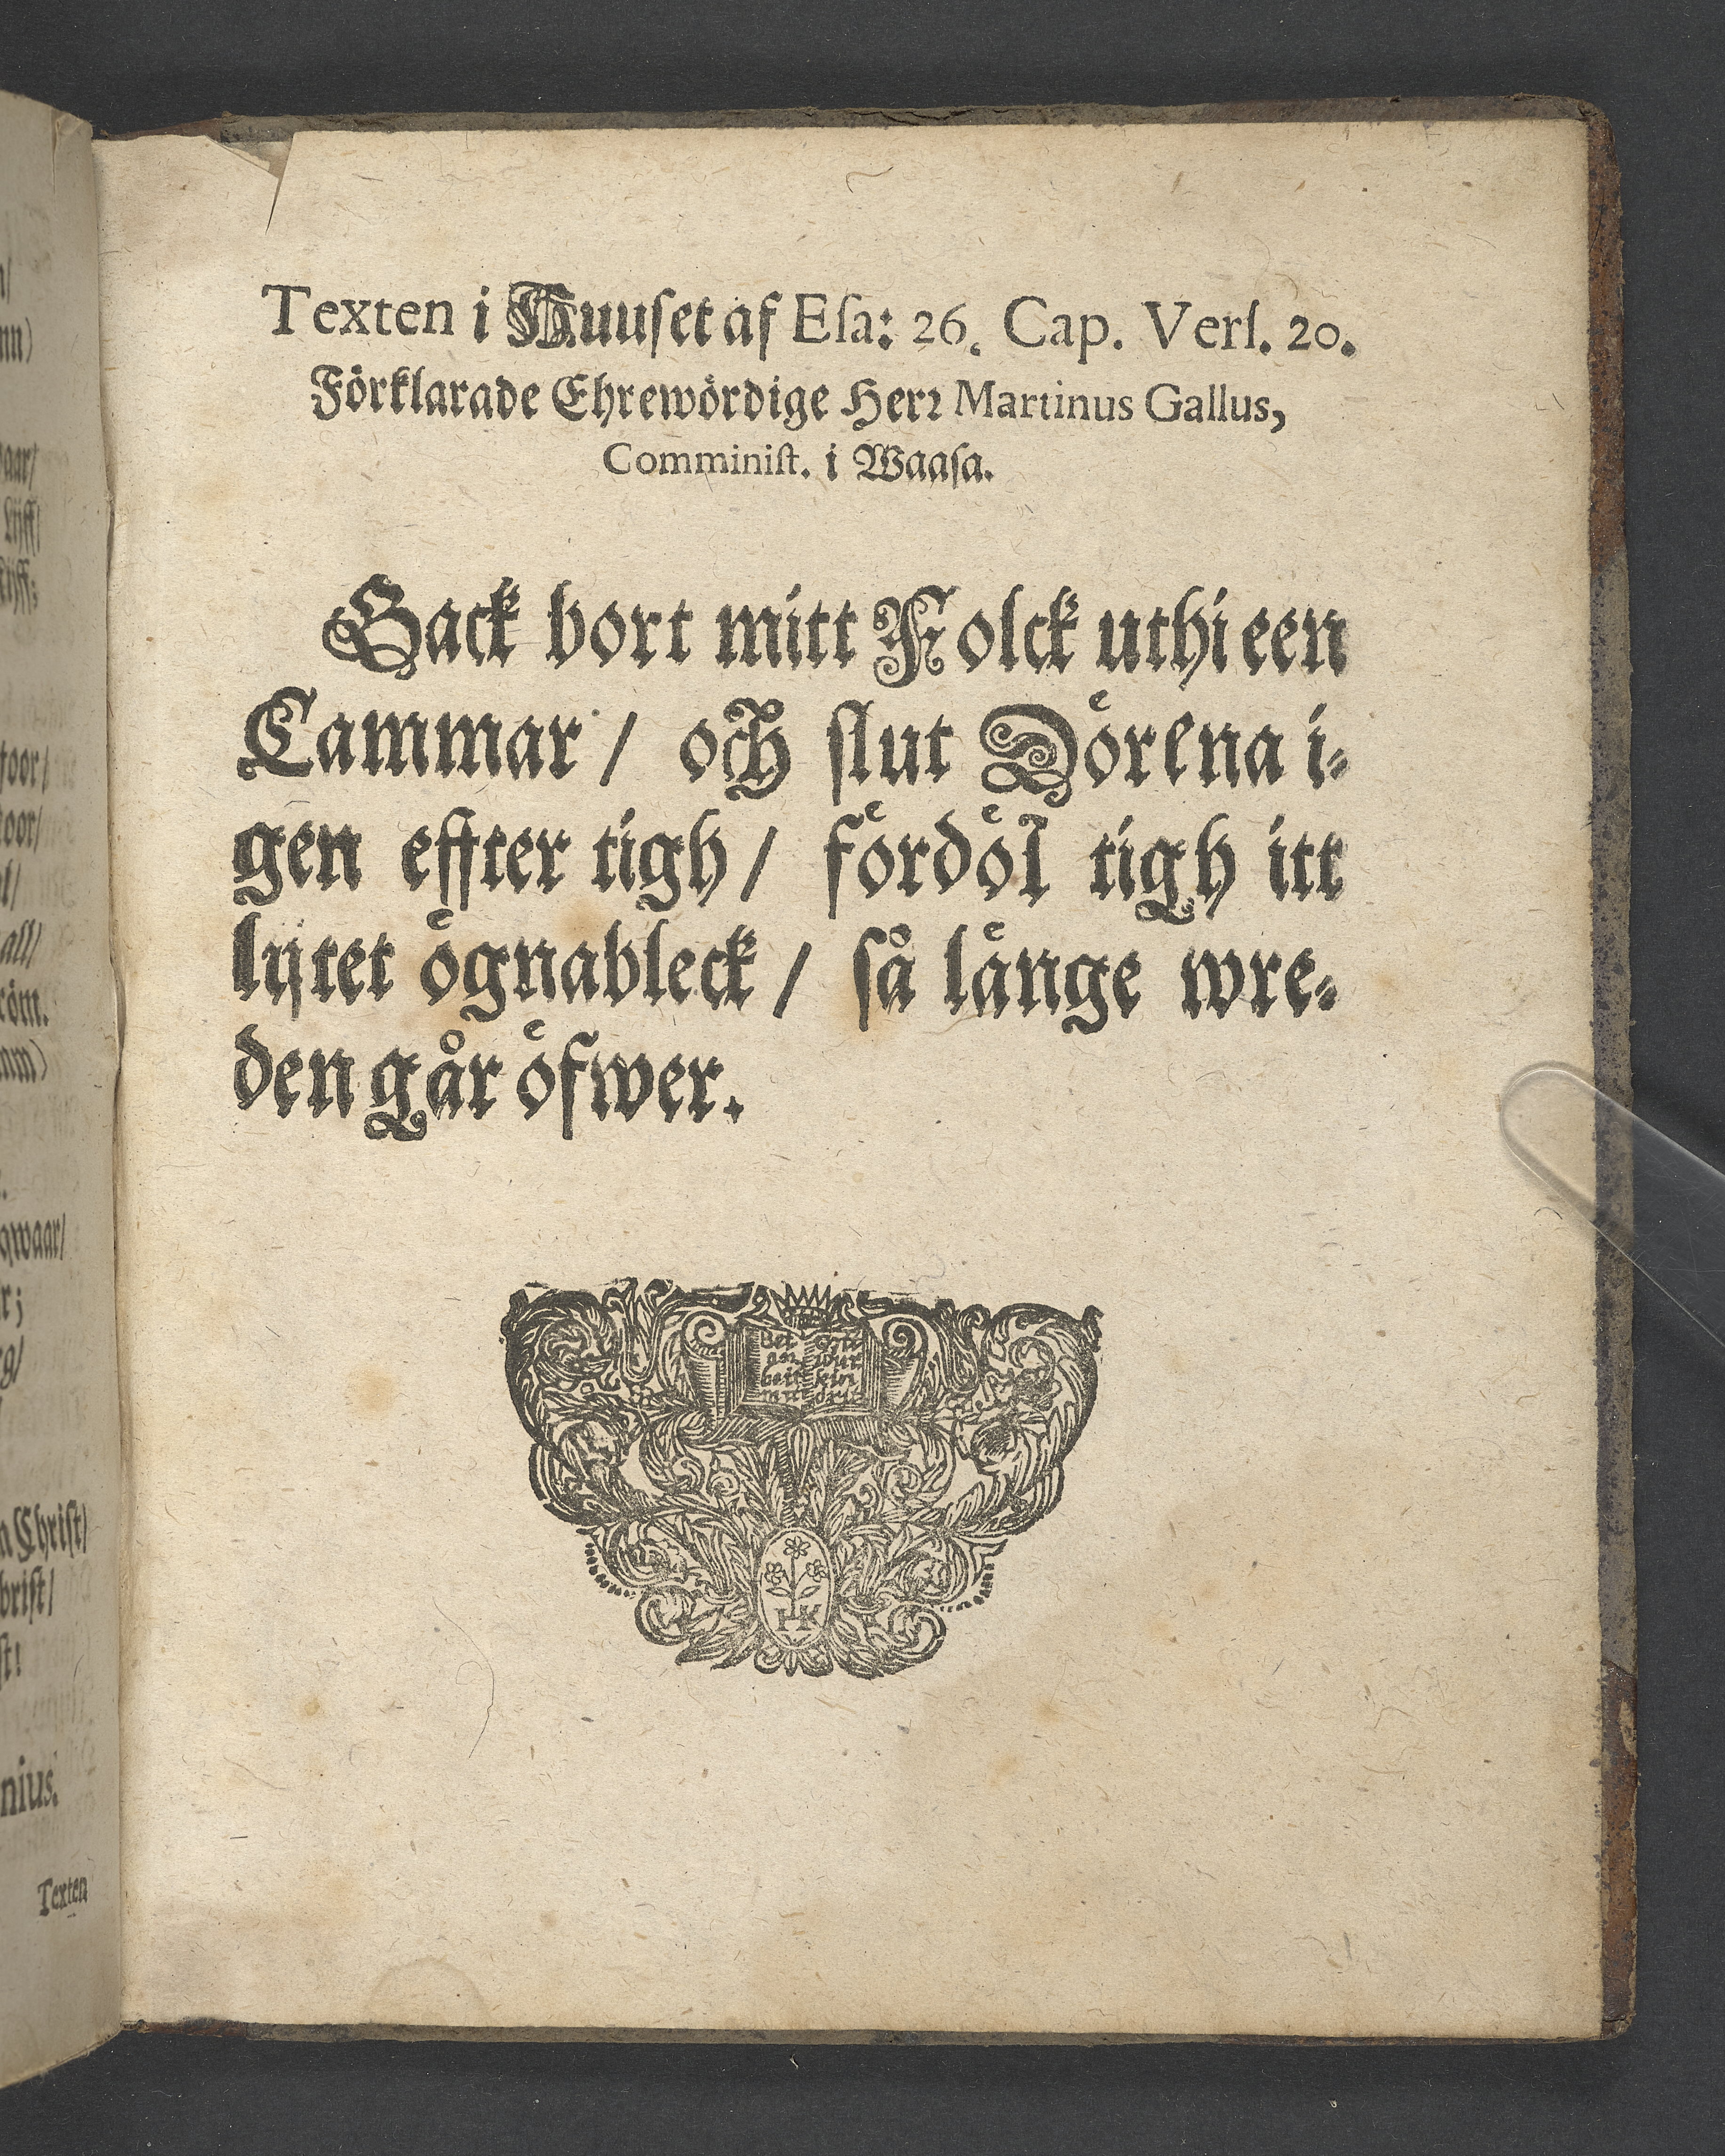 Texten i Huuſet af Eſa: 26. Cap. Verſ. 20.
Förklarade Ehrewördige Herr Martinus Gallus,
Comminiſt. i Waaſa.
Gack bort mitt Folck uthi een
Cammar / och ſlut Dörena i⸗
gen effter tigh / fördöl tigh itt
lijtet ögnableck / så långe wre⸗
den går öfwer.
HK
Texten